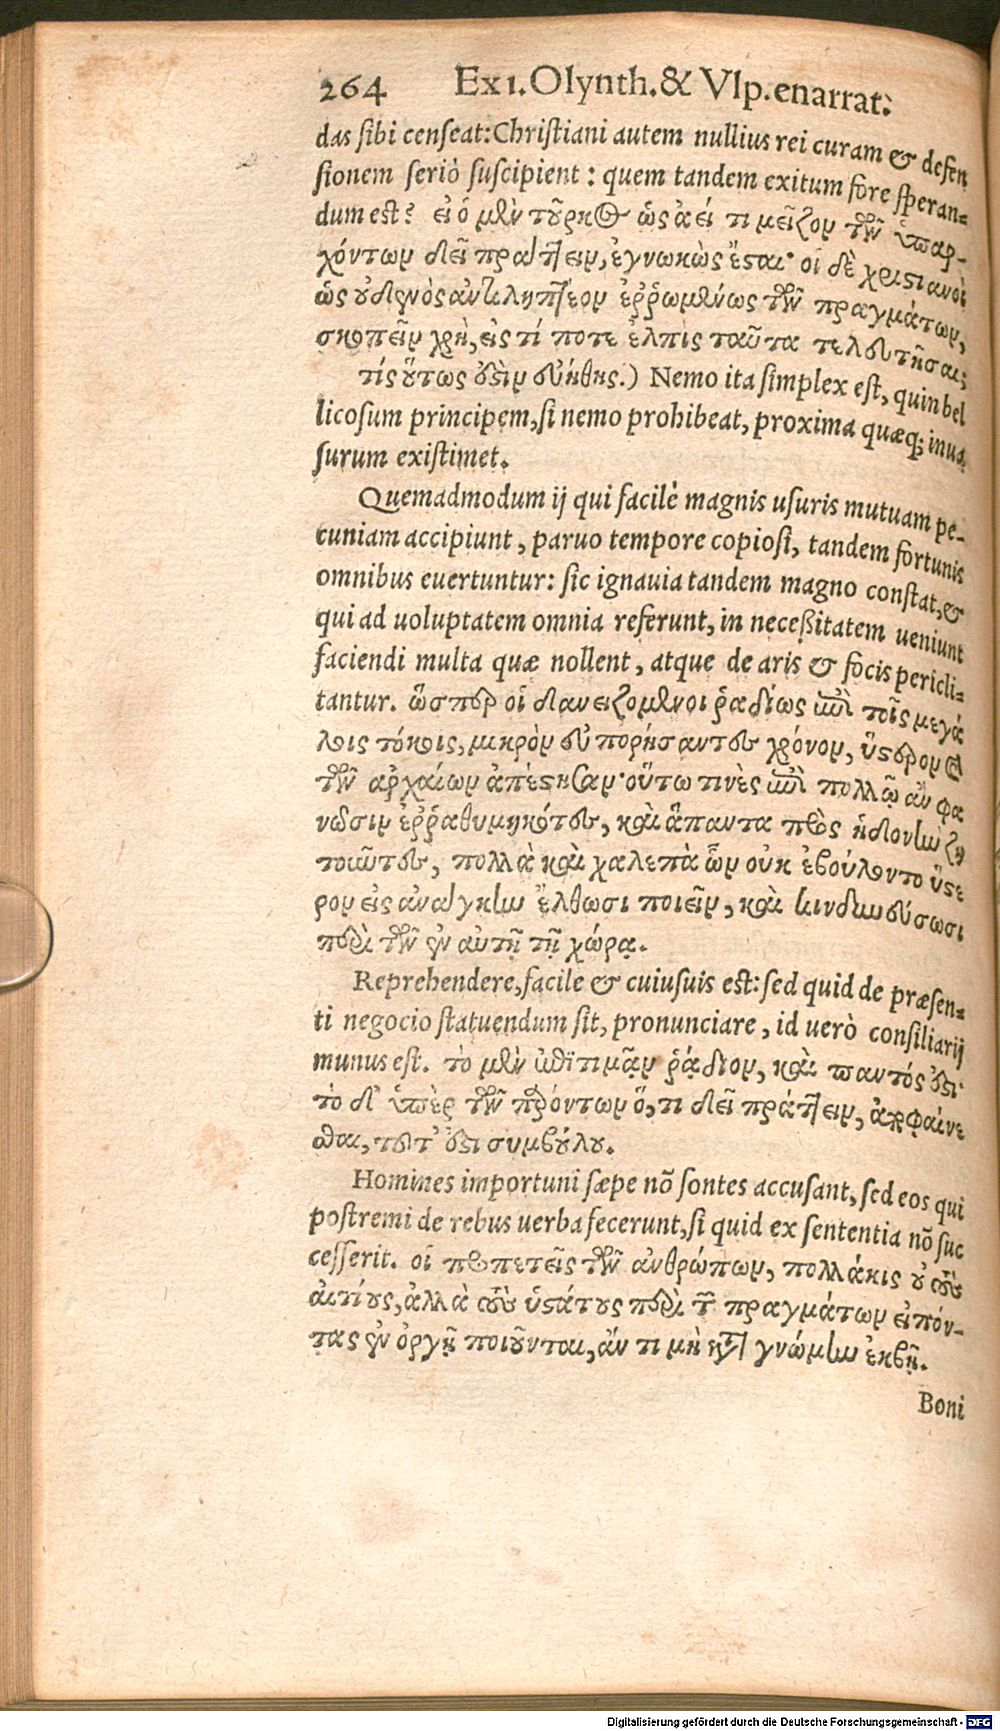 264 Ex 1. Olynth. & Vlp. enarrat.
das sibi censeat: Christiani autem nullius rei curam & defen
sionem seriò suscipient: quem tandem exitum fore speran-
dum est? εἰ ὁ μὲν τοῦρκος ὡς ἀεί τι μεῖζον τῶν ὑπαρ-
χόντων δεῖ πράττειν, ἐγνωκὼς ἔσαι· οἱ δὲ χρισιανοὶ
ὡς οὐδενὸς ἀντιληπτέον ἐῤῥωμένως τῶν πραγμάτων,
σκοπεῖν χρὴ, εἰς τί ποτε ἐλπὶς ταῦτα τελευτῆσαι;
τίς οὕτως ὅστιν εὐήθης.) Nemo ita simplex est, quin bel
licosum principem, si nemo prohibeat, proxima quæq; inua
surum existimet.
Quemadmodum ij qui facilè magnis usuris mutuam pe-
cuniam accipiunt, paruo tempore copiosi, tandem fortunis
omnibus euertuntur: sic ignauia tandem magno constat, &
qui ad uoluptatem omnia referunt, in neceßitatem ueniunt
faciendi multa quæ nollent, atque de aris & focis pericli-
tantur. ὥσπερ οἱ δανειζόμενοι ῥαδίως ἐπὶ τοῖς μεγά
λοις τόκοις, μικρὸν εὐπορήσαντες χρόνον, ὕστερον καὶ
τῶν ἀρχαίων ἀπέστησαν· οὕτω τινὲς ἐπὶ πολλῷ ἂν φα
νῶσιν ἐῤῥαθυμηκότες, καὶ ἅπαντα πρὸς ἡδονὴν ζη
τοιῶτες, πολλὰ καὶ χαλεπὰ ὧν οὐκ ἐβούλοντο ὕστε
ρον εἰς ἀνάγκην ἔλθωσι ποιεῖν, καὶ κινδυνεύσωσι
περὶ τῶν ἐν αὐτῇ τῇ χώρᾳ.
Reprehendere, facile & cuiusuis est: sed quid de præsen-
ti negocio statuendum sit, pronunciare, id uerò consiliarij
munus est. τὸ μὲν ἐπιτιμᾷν ῥᾴδιον, καὶ παντός ἐστι·
τὸ δ' ὑπὲρ τῶν παρόντων ὅ, τι δεῖ πράττειν, ἀποφαίνε
σθαι, τοῦτ' ἐστὶ συμβούλου.
Homines importuni sæpe nõ sontes accusant, sed eos qui
postremi de rebus uerba fecerunt, si quid ex sententia nõ suc
cesserit. οἱ προπετεῖς τῶν ἀνθρώπων, πολλάκις οὐ τοὺς
αἰτίους, ἀλλὰ τοὺς ὑστάτους περὶ τῶν πραγμάτων εἰπόν-
τας ἐν ὀργῇ ποιοῦνται, ἄν τι μὴ κατὰ γνώμην ἐκβῇ.
Boni
Digitalisierung gefördert durch die Deutsche Forschungsgemeinschaft - DFG